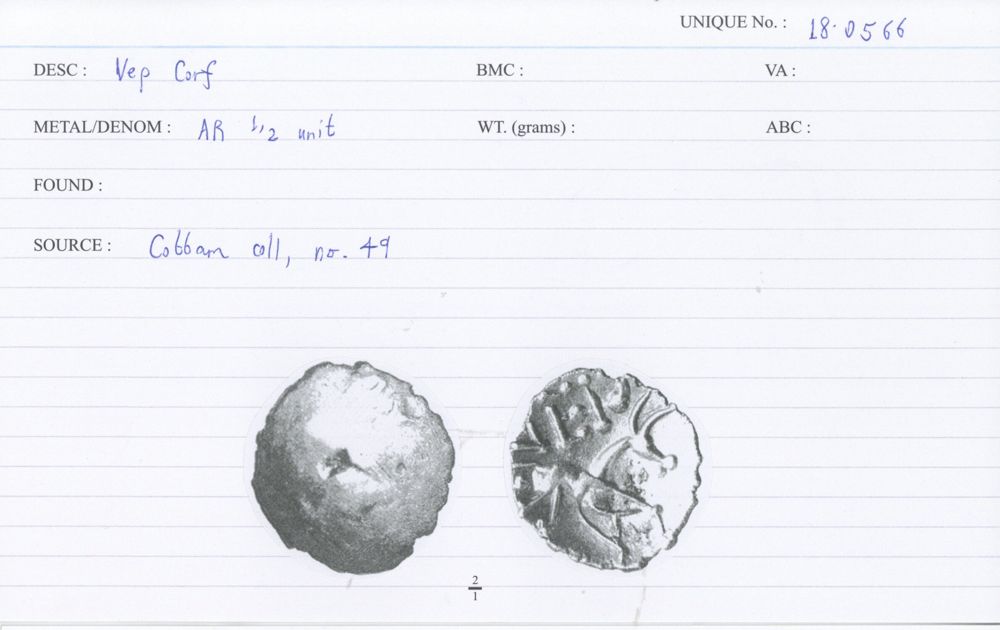 UNIQUE No. : 18.0566
DESC : Vep Corf BMC : VA :
METAL/DENOM : AR 1/2 unit WT. (grams) : ABC :
FOUND :
SOURCE : Cobbam coll, no. 49
2
1